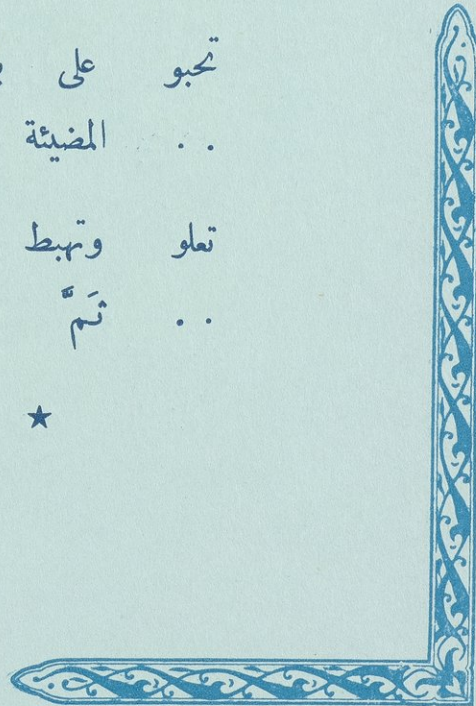 تحبو على
. . المضيئة
تعلو وتهبط
. . ثَمَّ
★